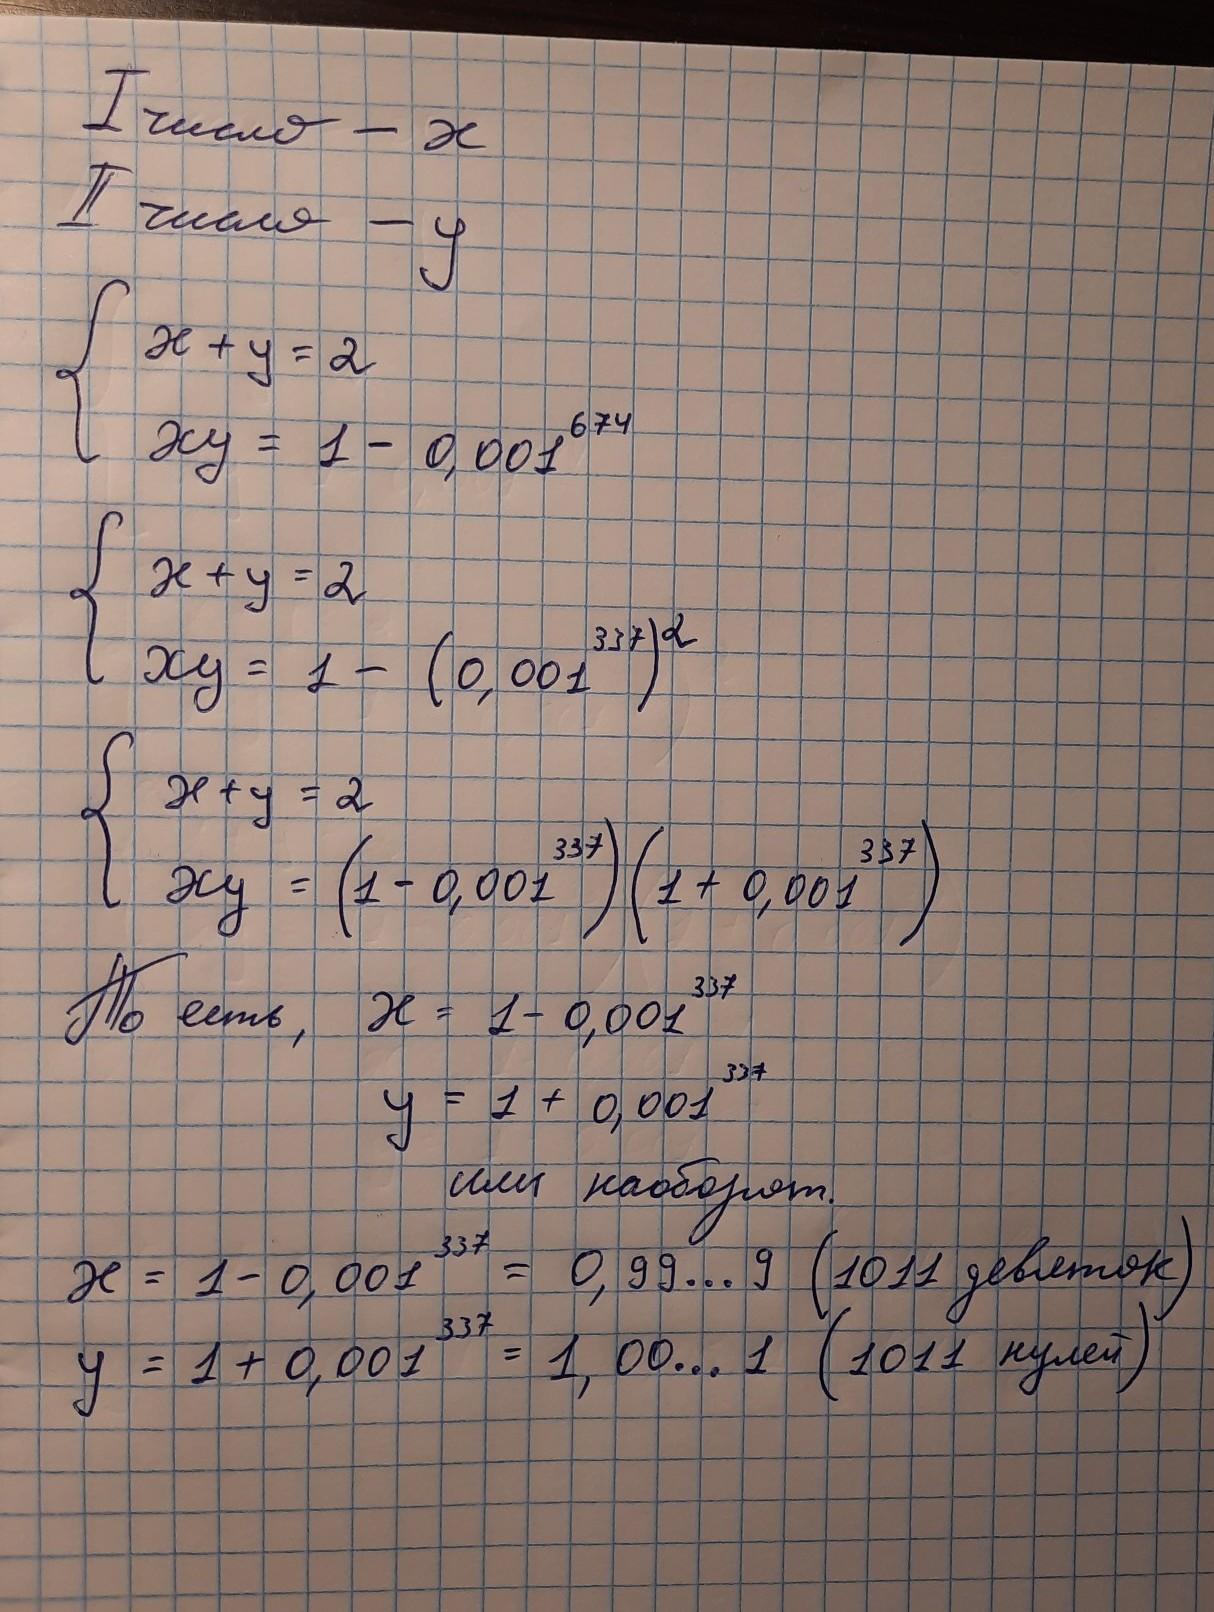 I число – x
II число – y
x + y = 2
xy = 1 – 0,001^674
x + y = 2
xy = 1 – (0,001^337)^2
x + y = 2
xy = (1 – 0,001^337)(1 + 0,001^337)
То есть, x = 1 – 0,001^337
y = 1 + 0,001^337
или наоборот.
x = 1 – 0,001^337 = 0,99...9 (1011 девяток)
y = 1 + 0,001^337 = 1,00...1 (1011 нулей)